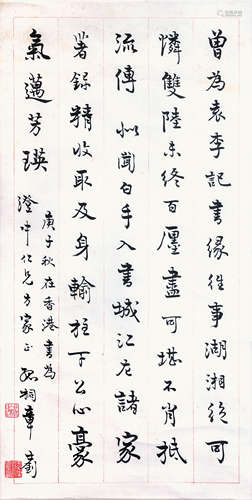 曾為袁李記書緣往事湖湘從可
憐雙陸未終百厘盡可堪不肖抵
流傳 卻聞白手入書城江左諸家
著錄精收取及身輸柱下公心豪
氣邁芳瑛
庚子秋在香港書為
澄中仁兄方家正 孤桐章士釗